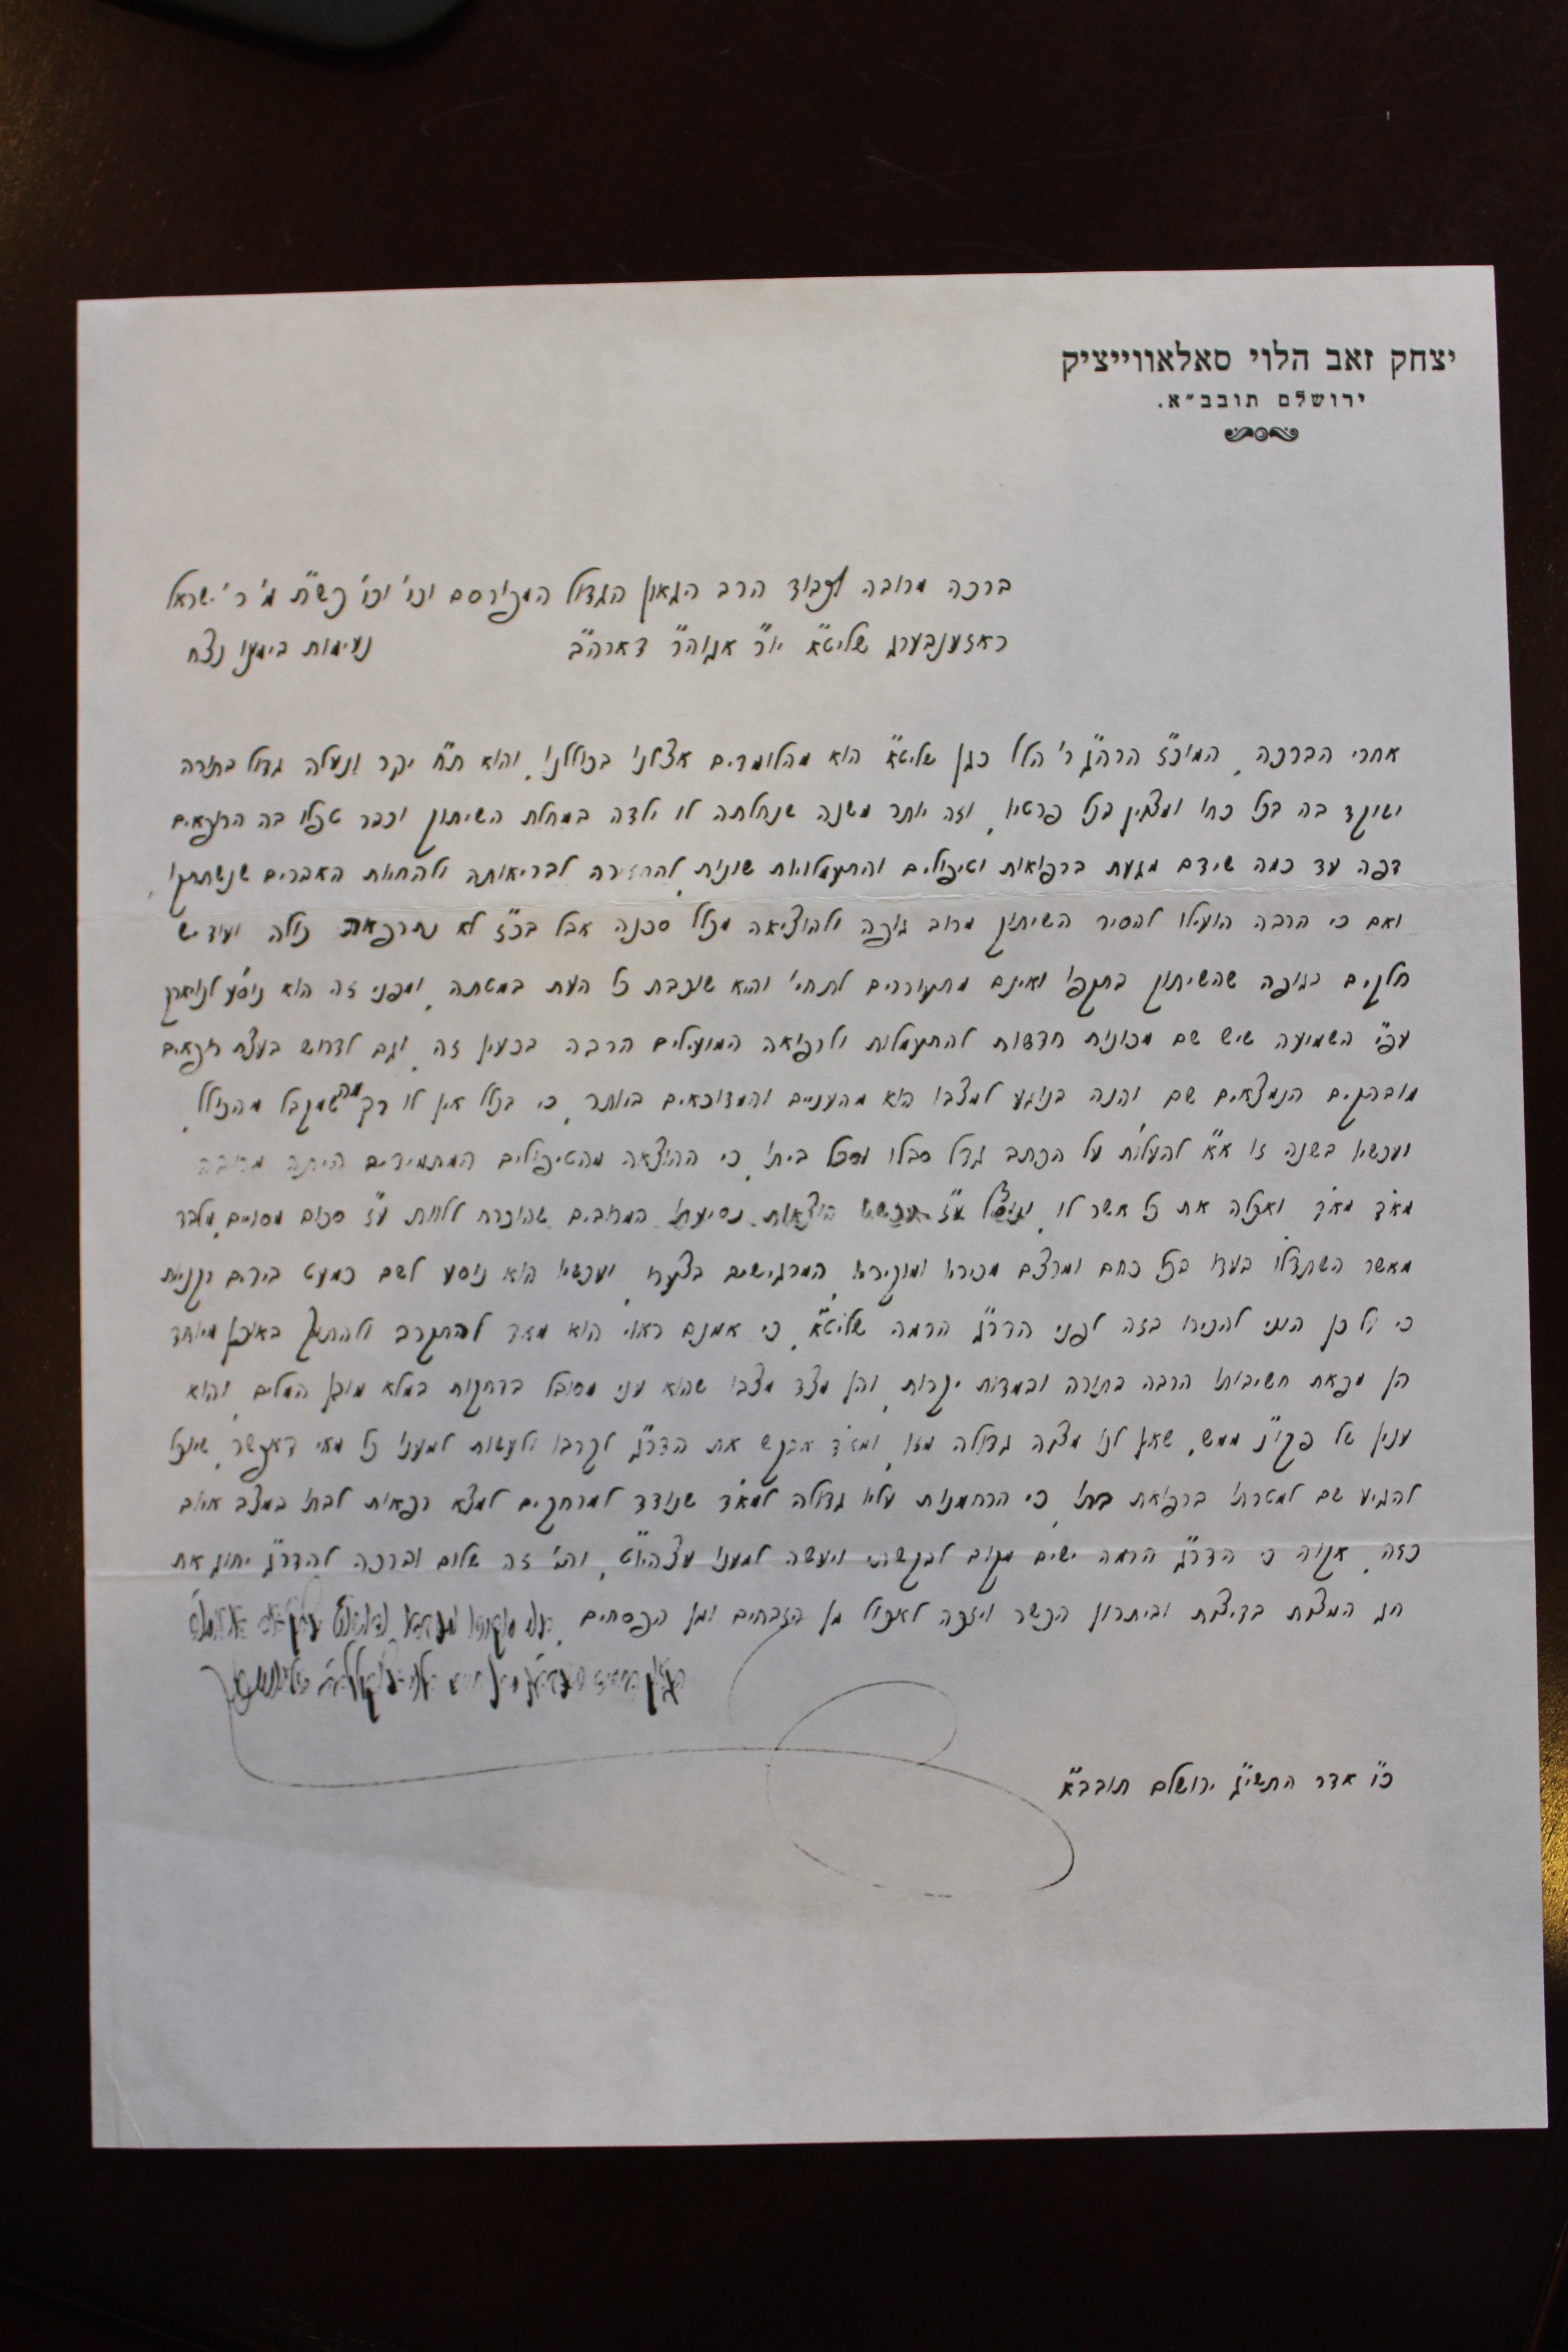 יצחק זאב הלוי סאלאווייציק
ירושלם תובב״א.
ברכה מרובה לכבוד הרב הגאון הגדול המפורסם וכו' וכו' כש"ת מ' ר' ישראל
ראזענבערג שליט"א יו"ר אגוה"ר דארה"ב נעימות בימינו נצח
אחרי הברכה, המוכ"ז הרה"ג ר' הלל כגן שליט"א הוא מהלומדים אצלנו בכוללנו, והוא ת"ח יקר ונעלה גדול בתורה
ושוקד בה בכל כחו ומצוין בכל פרטיו, וזה יותר משנה שנחלתה לו ילדה במחלת השיתוק וכבר טפלו בה הרופאים
דפה עד כמה שידם מגעת ברפואות וטיפולים והתעמלויות שונות להחזירה לבריאותה ולהחיות האברים שנשתתקו,
ואם כי הרבה הועילו להסיר השיתוק מרוב גופה ולהוציאה מכלל סכנה אבל בכ"ז לא נתרפאת כולה ועוד יש
חלקים בגופה שהשיתוק בתקפו ואינם מתעוררים לתחי' והיא שוכבת כל העת במטתה, ומפני זה הוא נוסע לנויארק
עפ"י השמועה שיש שם מכונות חדשות להתעמלות ולרפואה המועילים הרבה בכעין זה, וגם לדרוש בעצת רופאים
מובהקים הנמצאים שם, והנה בנוגע למצבו הוא מהעניים והמדוכאים ביותר, כי בכלל אין לו רק מה שמקבל מהכולל,
ועכשיו בשנה זו א"א להעלות על הכתב גודל סבלו וסבל ביתו, כי ההוצאה מהטיפולים המתמידים היתה מרובה
מאד מאד ואכלה את כל אשר לו, הוצאות נסיעתו המרובים שהוכרח ללוות ע"ז סכום מסויים, מלבד
מאשר השתדלו בעדו בכל כחם ומרצם מכיריו ומוקיריו המרגישים בצערו, ועכשיו הוא נוסע לשם כמעט בידים רקניות
כי על כן הנני להכירו בזה לפני הדר"ג הרמה שליט"א, כי אמנם ראוי הוא מאד להתקרב ולהתמך באופן מיוחד
הן מפאת חשיבותו הרבה בתורה ובמדות יקרות, והן מצד מצבו שהוא עני מסובל בדחקות במלא מובן המלים, והוא
ענין של פקו"נ ממש, שאין לנו מצוה גדולה מזו, ומאד אבקש את הדר"ג לקרבו ולעשות למענו כל מאי דאפשר, שיוכל
להגיע שם למטרתו ברפואת בתו, כי הרחמנות עליו גדולה למאד שנודד למרחקים למצא רפאות לבתו במצב איום
כזה, אקוה כי הדר"ג הרמה ישים מקום לבקשתי ויעשה למענו עצהיו"ט, והי' זה שלום וברכה להדר"ג יחוג את
חג המצות בדיצות וביתרון הכשר ויזכה לאכול מן הזבחים ומן הפסחים,
כ"ו אדר התשי"ג ירושלם תובב"א